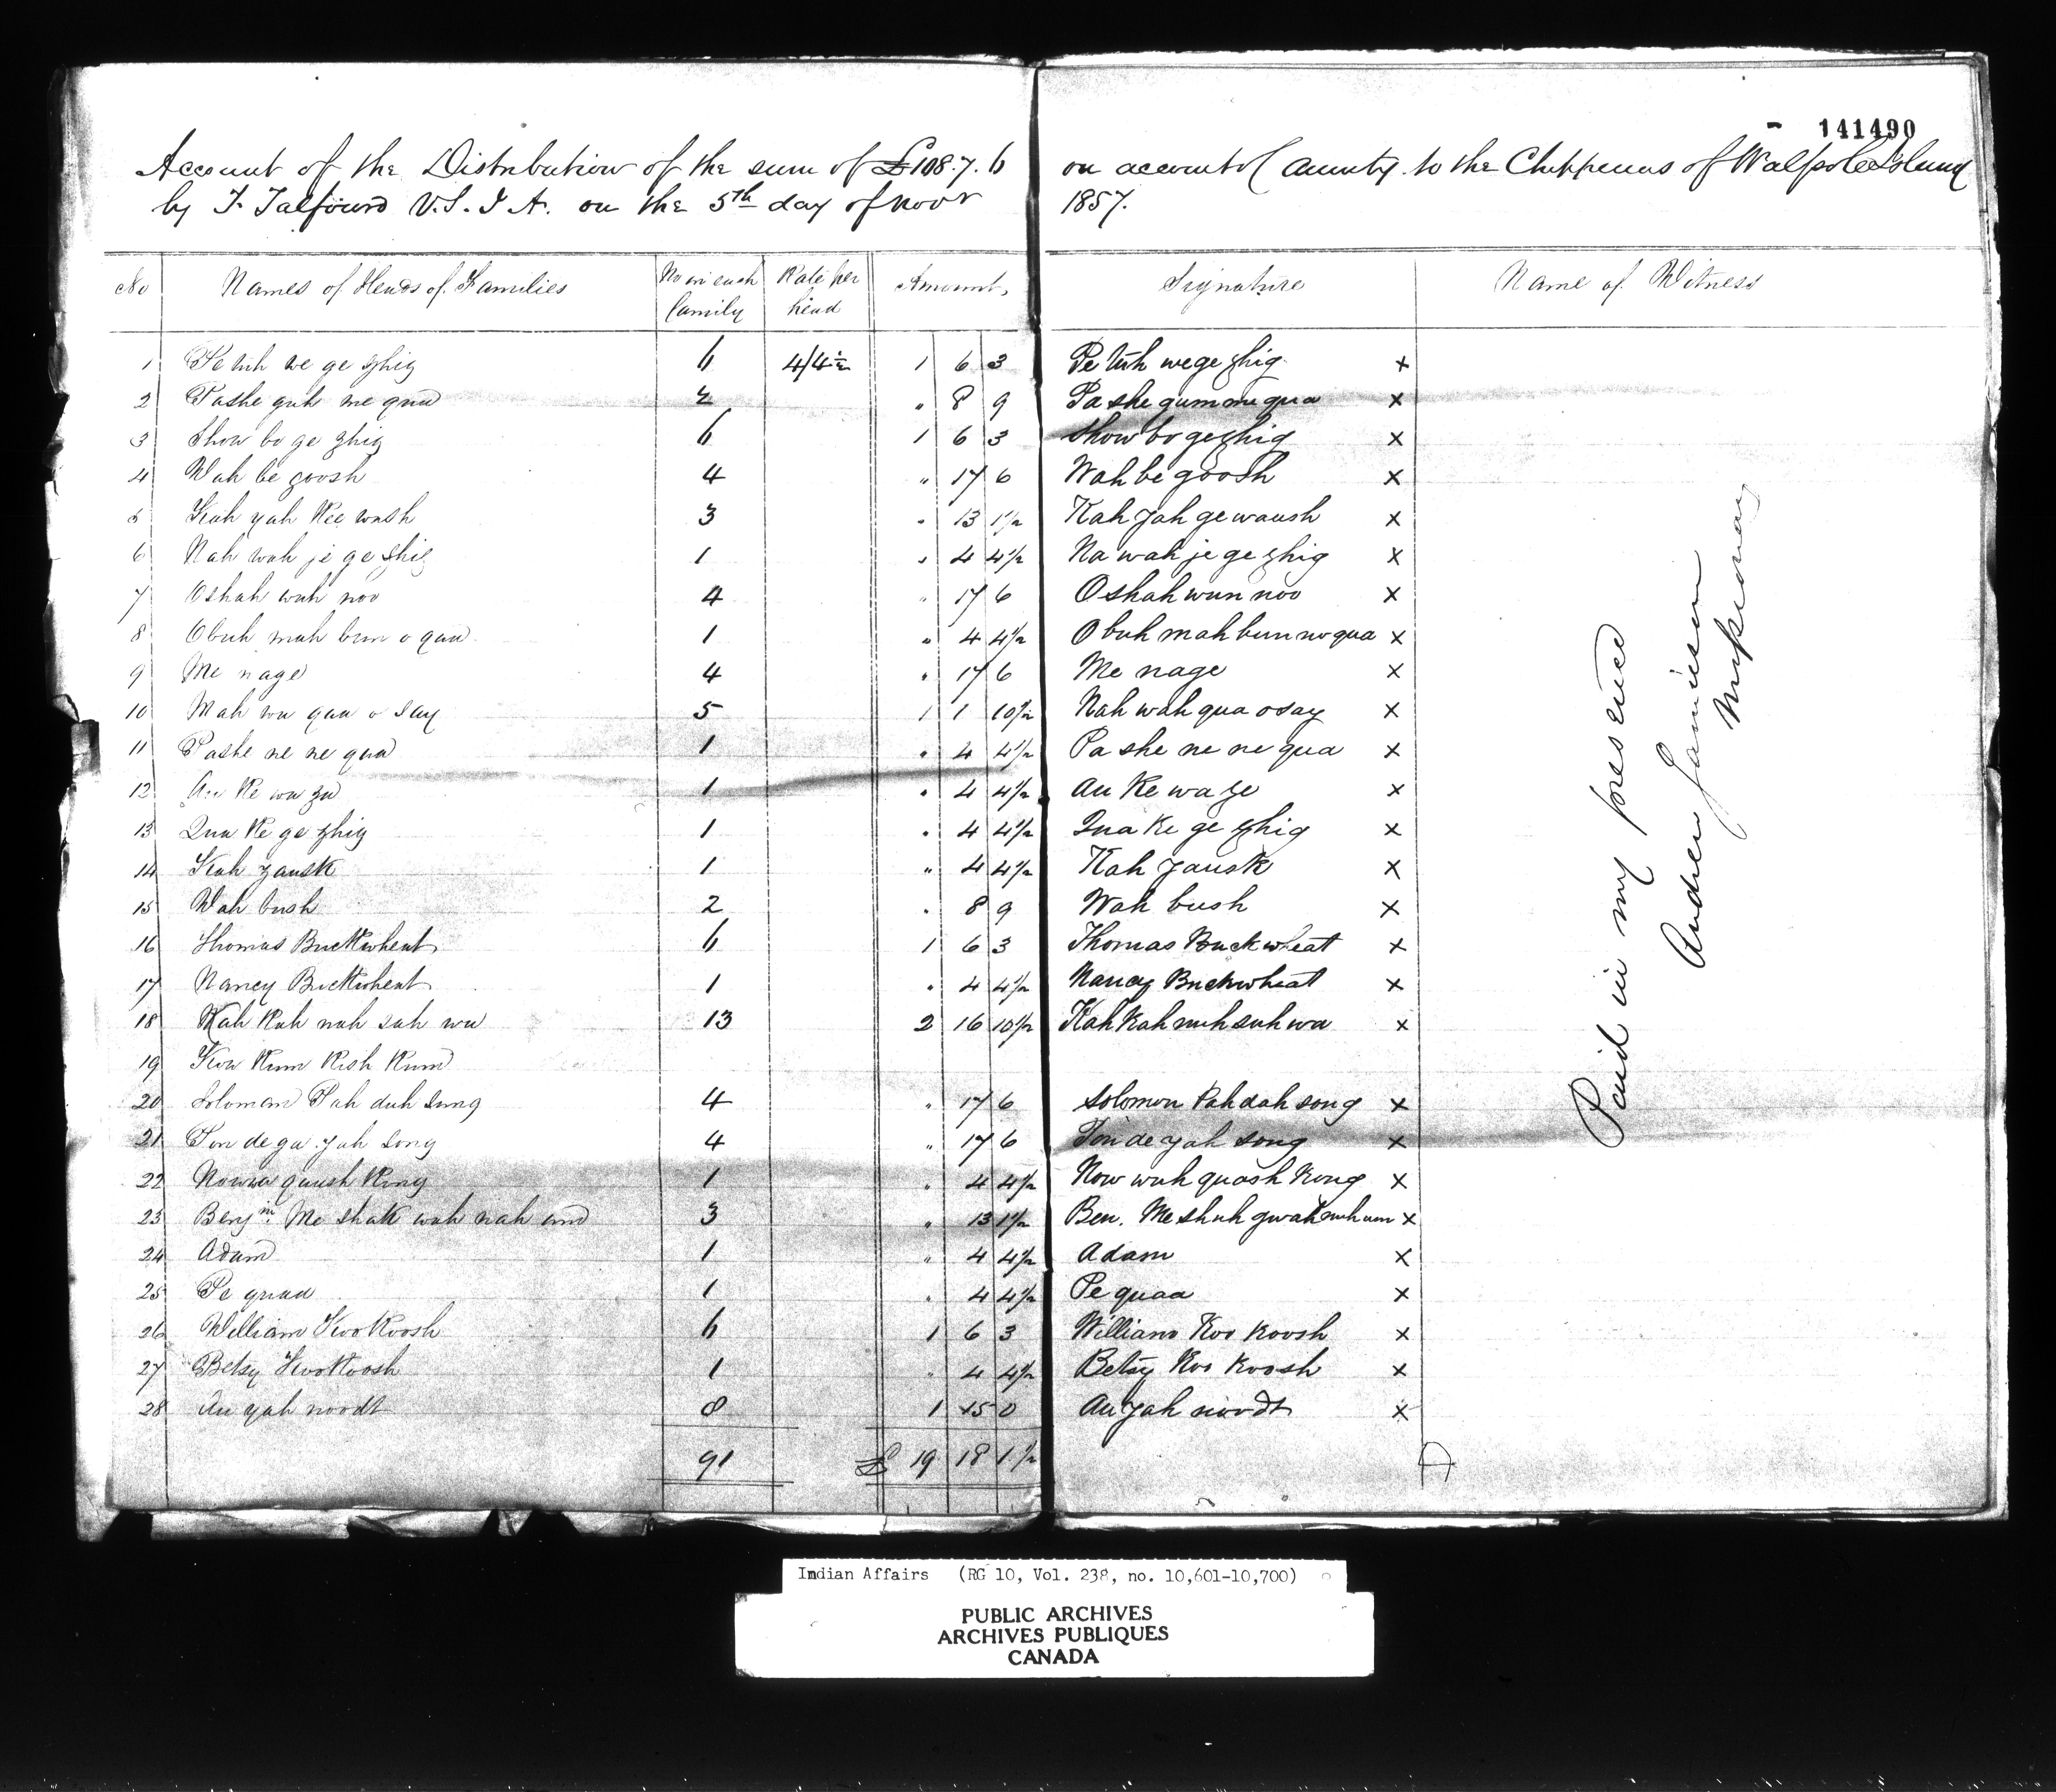 141490
Account of the Distribution of the sum of £108.7.6 on account of Annuity to the Chippewas of Walpole Island
by F. Talfourd V.S.I.A. on the 5th day of Novr 1857.
No Names of Heads of Families No in each family Rate per head Amount, Signature Name of Witness
1 Pe tuh we ge zhig 6 4/4½ 1 6 3 Pe tuh wege zhig x
2 Pashe guh me qua 2 " 8 9 Pa she gum me qua x
3 Show bo ge zhig 6 1 6 3 Show bo gezhig x
4 Wah be goosh 4 " 17 6 Wah be goosh x
5 Kah yah Kee wash 3 " 13 1½ Kah yah ge waush x
6 Nah wah je ge zhig 1 " 4 4½ Na wah je ge zhig x
7 Oshah wuh noo 4 " 17 6 Oshah wun noo x
8 Obuh mah bun o qua 1 " 4 4½ Obuh mah bun no qua x
9 Me nage 4 " 17 6 Me nage x
10 Mah wa qua o say 5 1 1 10½ Nah wah qua osay x
11 Pashe ne ne qua 1 " 4 4½ Pa she ne ne qua x
12 Au Ke wa ze 1 " 4 4½ Au Ke wa ze x
13 Qua Ke ge zhig 1 " 4 4½ Qua Ke ge zhig x
14 Kah yausk 1 " 4 4½ Kah yausk x
15 Wah bush 2 " 8 9 Wah bush x
16 Thomas Buckwheat 6 1 6 3 Thomas Buckwheat x
17 Nancy Buckwheat 1 " 4 4½ Nancy Buckwheat x
18 Kah Kah nuh suh wa 13 2 16 10½ Kah Kah nuh suh wa x
19 Kwa Kum Kish Kum
20 Soloman Pah duh sung 4 " 17 6 Solomon Pahdah song x
21 Ton de ga yah song 4 " 17 6 Ton de yah song x
22 Nowwa quush Kung 1 " 4 4½ Now wuh quosh Kong x
23 Benjn. Me shak wah nah um 3 " 13 1½ Ben. Me shuh gwah nuh um x
24 Adam 1 " 4 4½ Adam x
25 Pe quaa 1 " 4 4½ Pe quaa x
26 William Koo Koosh 6 1 6 3 William Koo Koosh x
27 Betsy Koo Koosh 1 " 4 4½ Betsy Koo Koosh x
28 Au yah noodt 8 1 15 0 Au yah noodt x
91 £ 19 18 1½
Paid in my presence
Andrew Jamieson
Missionary
Indian Affairs (RG 10, Vol. 238, no. 10,601-10,700)
PUBLIC ARCHIVES
ARCHIVES PUBLIQUES
CANADA